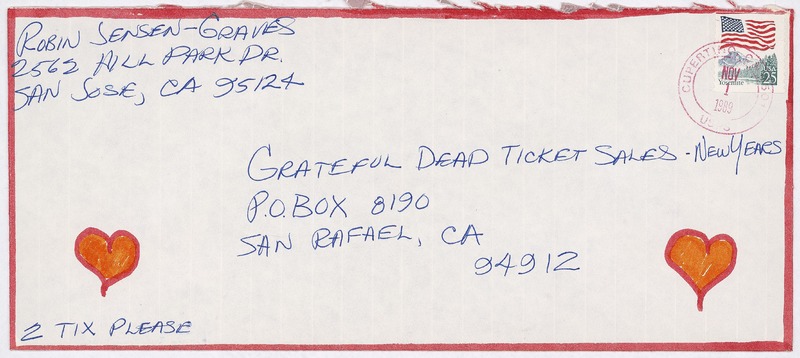 ROBIN JENSEN-GRAVES
2562 HILL PARK DR.
SAN JOSE, CA 95124
Yosemite
USA
25
CUPERTINO
NOV
1
1989
GRATEFUL DEAD TICKET SALES - NEW YEARS
P.O. BOX 8190
SAN RAFAEL, CA
94912
2 TIX PLEASE